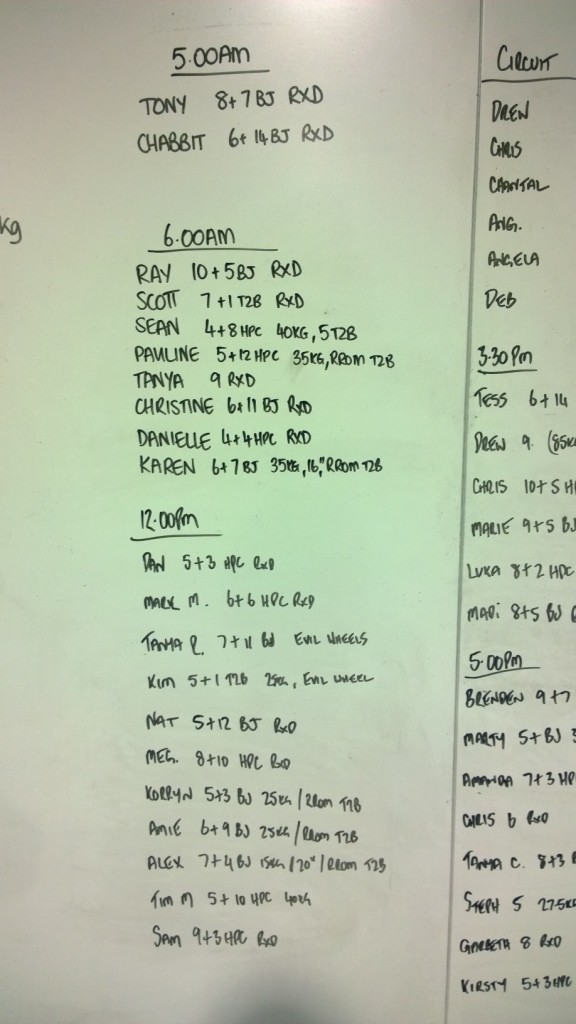 5.00AM
TONY 8+7 BJ RXD
CHABBIT 6+ 14BJ RXD
kg
6.00AM
RAY 10+5BJ RXD
SCOTT 7+1 T2B RXD
SEAN 4+8 HPC 40KG, 5 T2B
PAULINE 5+12 HPC 35KG, RROM T2B
TANYA 9 RXD
CHRISTINE 6+11 BJ RXD
DANIELLE 4+4HPC RXD
KAREN 6+7 BJ 35KG, 16", RROM T2B
12.00PM
DAN 5+3 HPC RXD
MARK M. 6+6 HPC RXD
TANYA R. 7+11 BJ EVIL WHEELS
KIM 5+1 T2B 25KG, EVIL WHEEL
NAT 5+12 BJ RXD
MEG. 8+10 HPC RXD
KORRYN 5+3 BJ 25KG / RROM T2B
AMIE 6+9 BJ 25KG / RROM T2B
ALEX 7+4 BJ 15KG / 20" / RROM T2B
TIM M 5+10 HPC 40KG
SAM 9+3 HPC RXD
CIRCUIT
DREW
CHRIS
CHANTAL
ANG.
ANGELA
DEB
3.30PM
TESS 6+14
DREW 9 (85K
CHRIS 10+5 H
MARIE 9+5 BJ
LUKA 8+2 HPC
MADI 8+5 BJ
5:00PM
BRENDEN 9+7
MARTY 5+ BJ
AMANDA 7+3 HP
CHRIS 6 RXD
TANYA C. 8+3
STEPH 5 27.5K
GARBETH 8 RXD
KIRSTY 5+3HPC